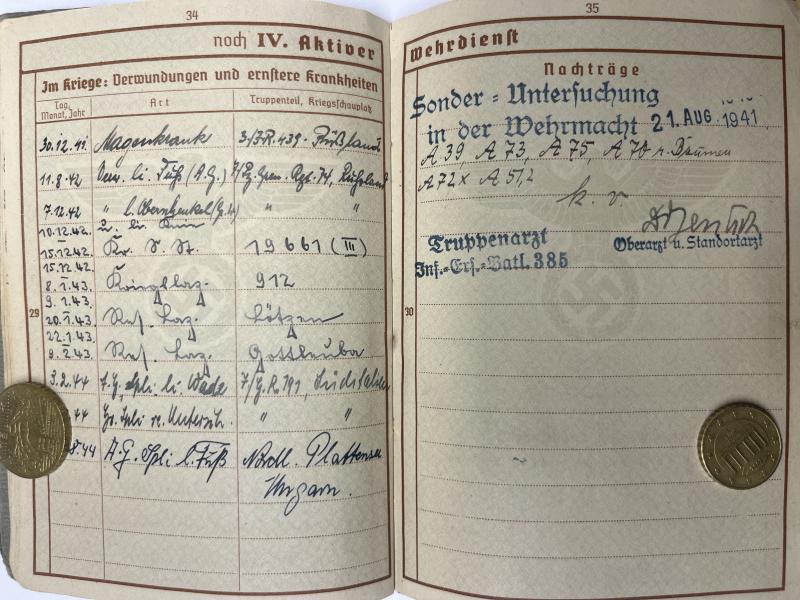 34
noch IV. Aktiver
Im Kriege: Verwundungen und ernstere Krankheiten
Tag, Monat, Jahr Art Truppenteil, Kriegsschauplatz
30.12.41 Magenkrank 3/J.R. 439 - Rußland
11.8.42 Verw. li. Fuß (A.G.) 7/Pz. Gren. Rgt. 74, Rußland
7.12.42 " l. Oberschenkel " "
10.12.42 u. li.
15.12.42 Kr. S. St. 19661 (III)
15.12.42
8.1.43 Kriegslaz. 912
9.1.43
20.1.43 Res. Laz. Lötzen
22.1.43
9.2.43 Res. Laz. Gottleuba
3.2.44 A.G. Spli. li. Wade 7/G.R. 191, Süditalien
44 Gr. Spli re. Untersch. " "
8.44 A.G. Spli l. Fuß Nördl. Plattensee
Ungarn.
29
35
Wehrdienst
Nachträge
Sonder-Untersuchung
in der Wehrmacht 21. AUG. 1941
A 39, A 73, A 75, A 70 r. Daumen
A 72 x A 51,2
k. v
Truppenarzt
Oberarzt u. Standortarzt
Inf.-Ers.-Batl. 385
30